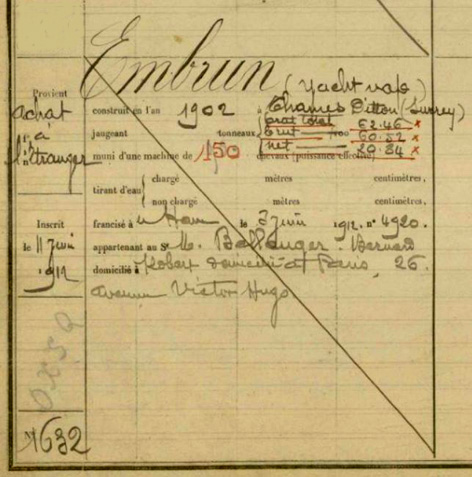 Embrun (Yacht vap)
Provient
achat
à
l'étranger
construit en l'an 1902 à Thames Ditton (Surrey)
jaugeant tonneaux
brat total 62.46 x
brut 60.52 x
net 20.84 x
muni d'une machine de 150 chevaux (puissance effective)
tirant d'eau
chargé mètres centimètres,
non chargé mètres centimètres,
Inscrit
le 11 Juin
1912
francisé à Havre le 3 Juin 1912. n° 4920.
appartenant au Sr M. Ballanger. Bernard
domicilié à Robert domicilié à Paris, 26.
avenue Victor Hugo
OXSQ
1632